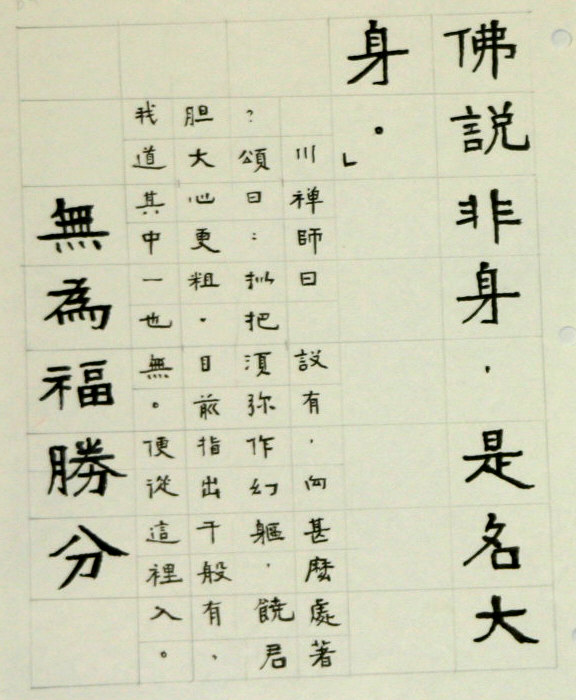 佛説非身，是名大
身。」
川禅師曰　設有，向甚麼處著
？頌曰：拟把須弥作幻軀，饒君
胆大心更粗。目前指出千般有，
我道其中一也無。便從這裡入。
無為福勝分